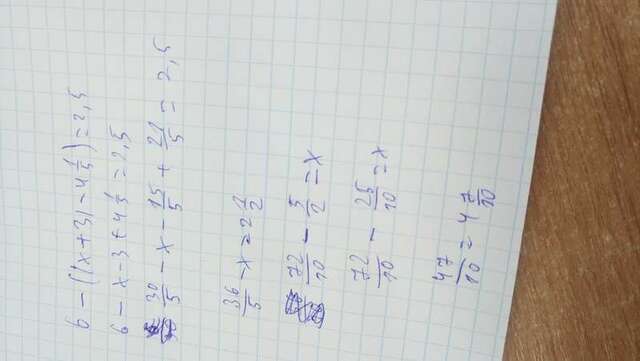 6 - ((x+3) - 4 1/5) = 2,5
6 - x - 3 + 4 1/5 = 2,5
30/5 - x - 15/5 + 21/5 = 2,5
36/5 - x = 2 1/2
72/10 - 5/2 = x
72/10 - 25/10 = x
47/10 = 4 7/10